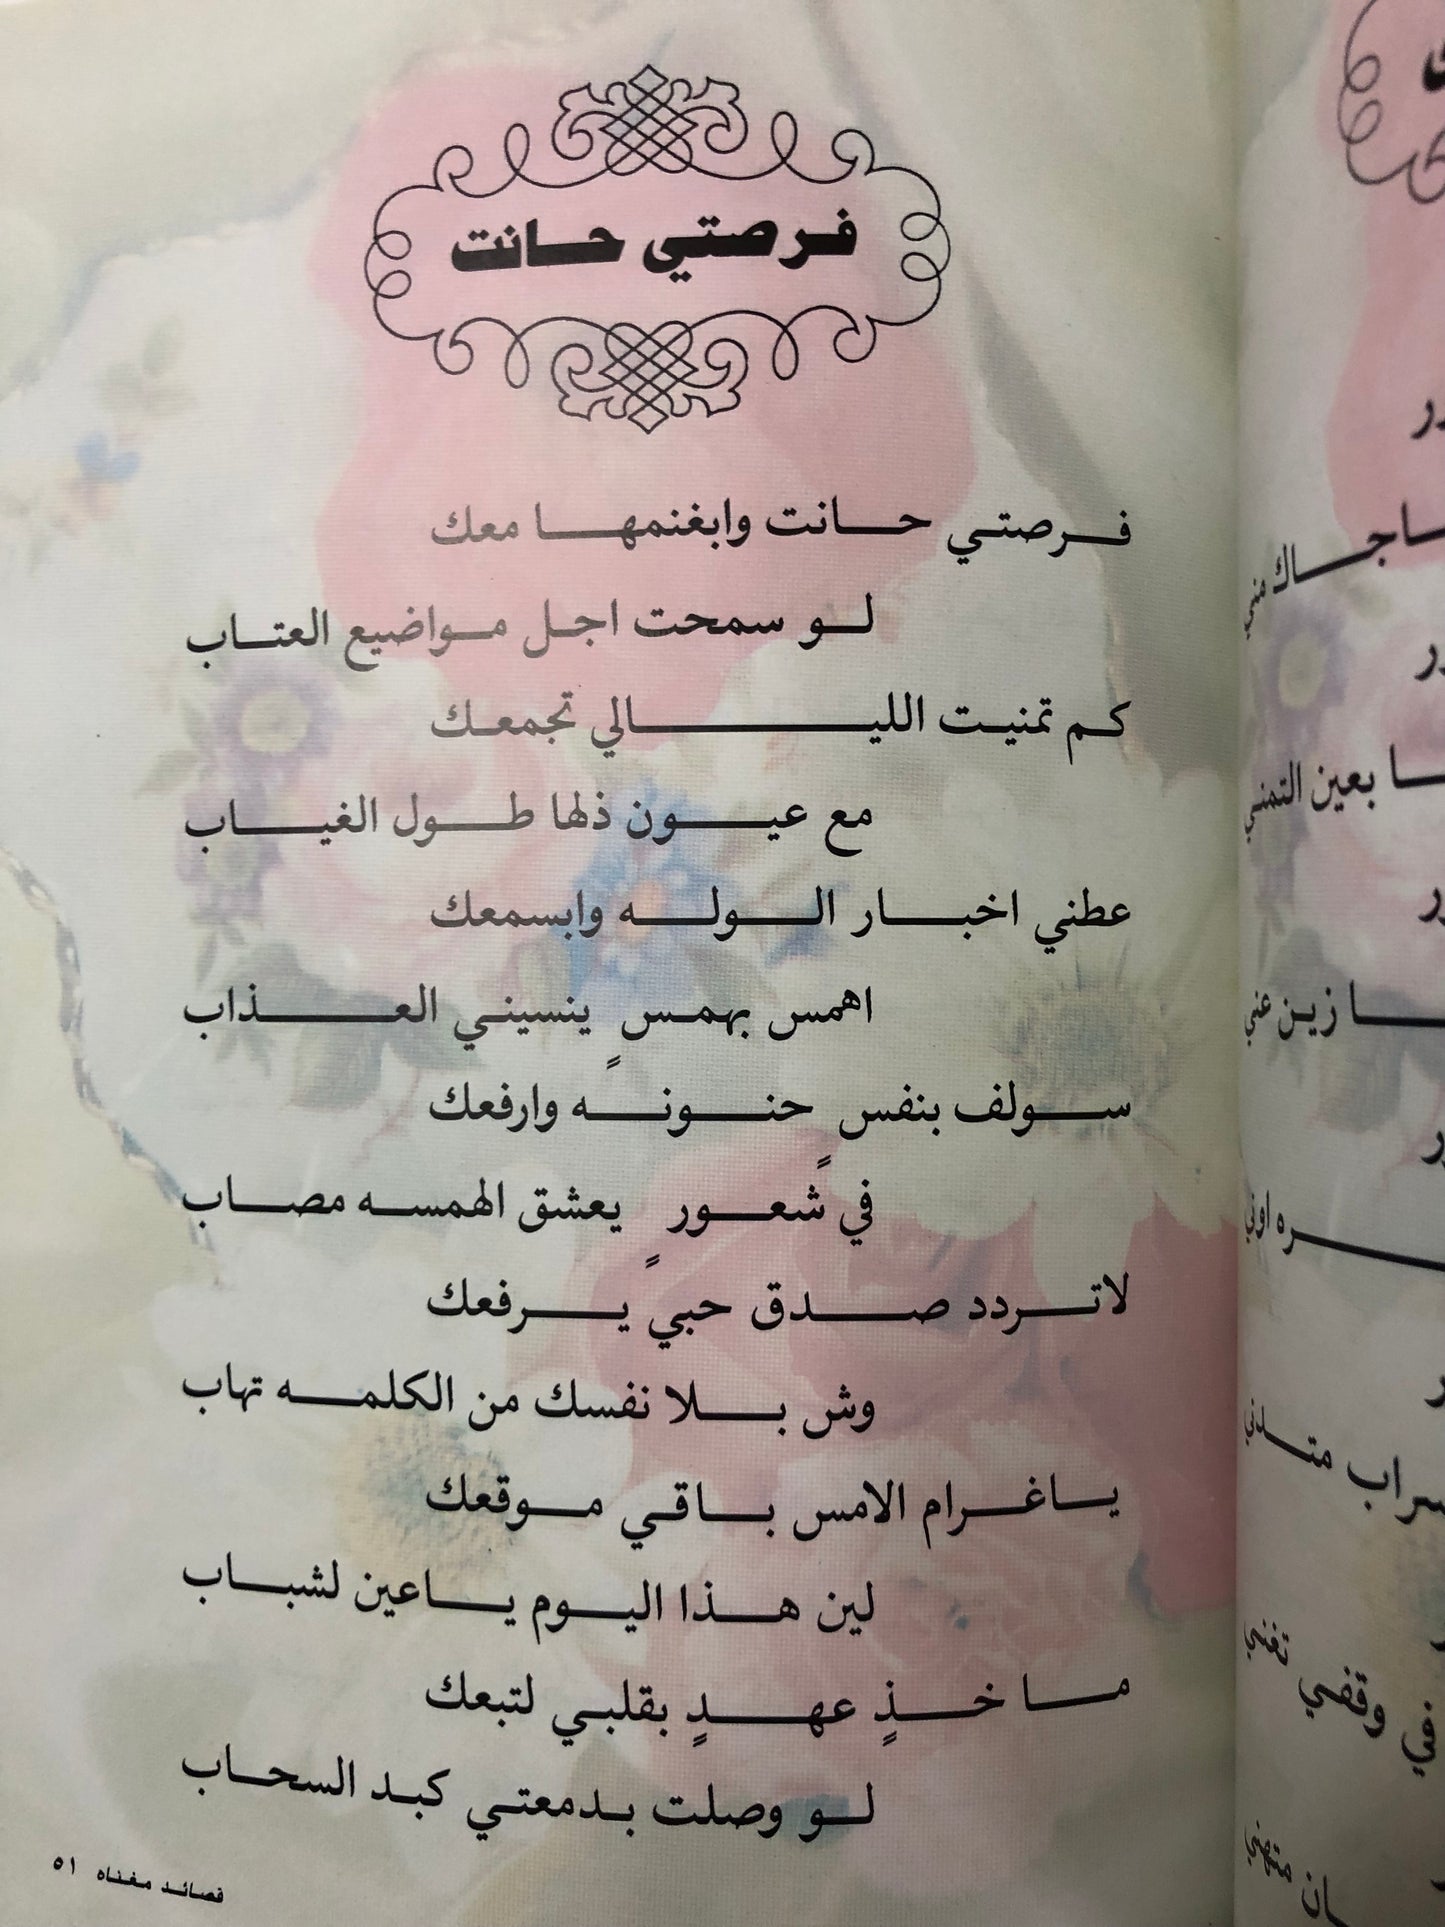 فرصتي حانت
فرصتي حانت وابغنمها معك
لو سمحت اجل مواضيع العتاب
كم تمنيت الليالي تجمعك
مع عيون ذلها طول الغياب
عطني اخبار الوله وابسمعك
اهمس بهمسٍ ينسيني العذاب
سولف بنفسٍ حنونه وارفعك
في شعورٍ يعشق الهمسه مصاب
لاتردد صدق حبي يرفعك
وش بلا نفسك من الكلمه تهاب
ياغرام الامس باقي موقعك
لين هذا اليوم ياعين لشباب
ما خذٍ عهدٍ بقلبي لتبعك
لو وصلت بدمعتي كبد السحاب
قصائد مغناه ٥١
ـاجاك مني
ـا بعين التمني
ـا زين عني
ـره اوني
ـراب متدني
في وقفي تغني
ـان متهني